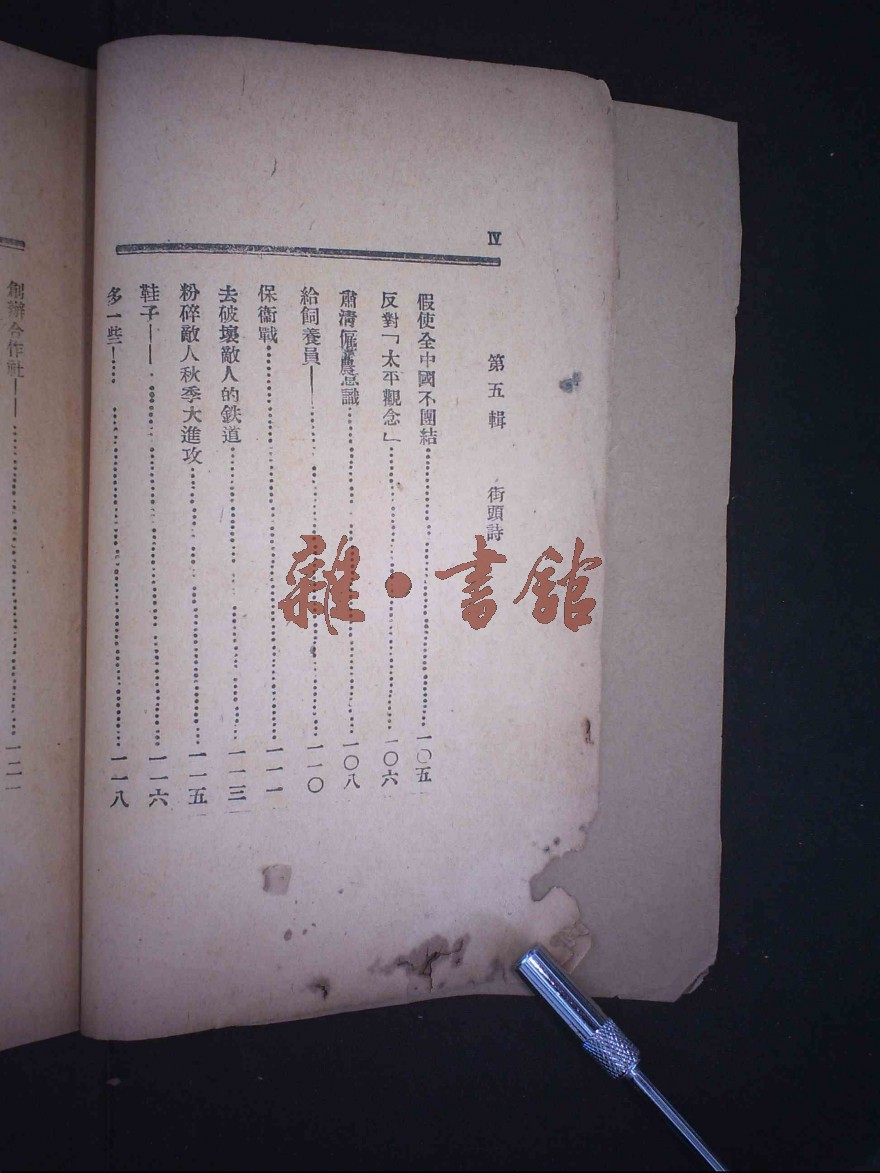 IV
第五輯 街頭詩
假使全中國不團結 一〇五
反對「太平觀念」 一〇六
肅清僱農意識 一〇八
給飼養員—— 一一〇
保衞戰 一一一
去破壞敵人的鉄道 一一三
粉碎敵人秋季大進攻 一一五
鞋子—— 一一六
多一些—— 一一八
創辦合作社—— 一二一
雜·書館